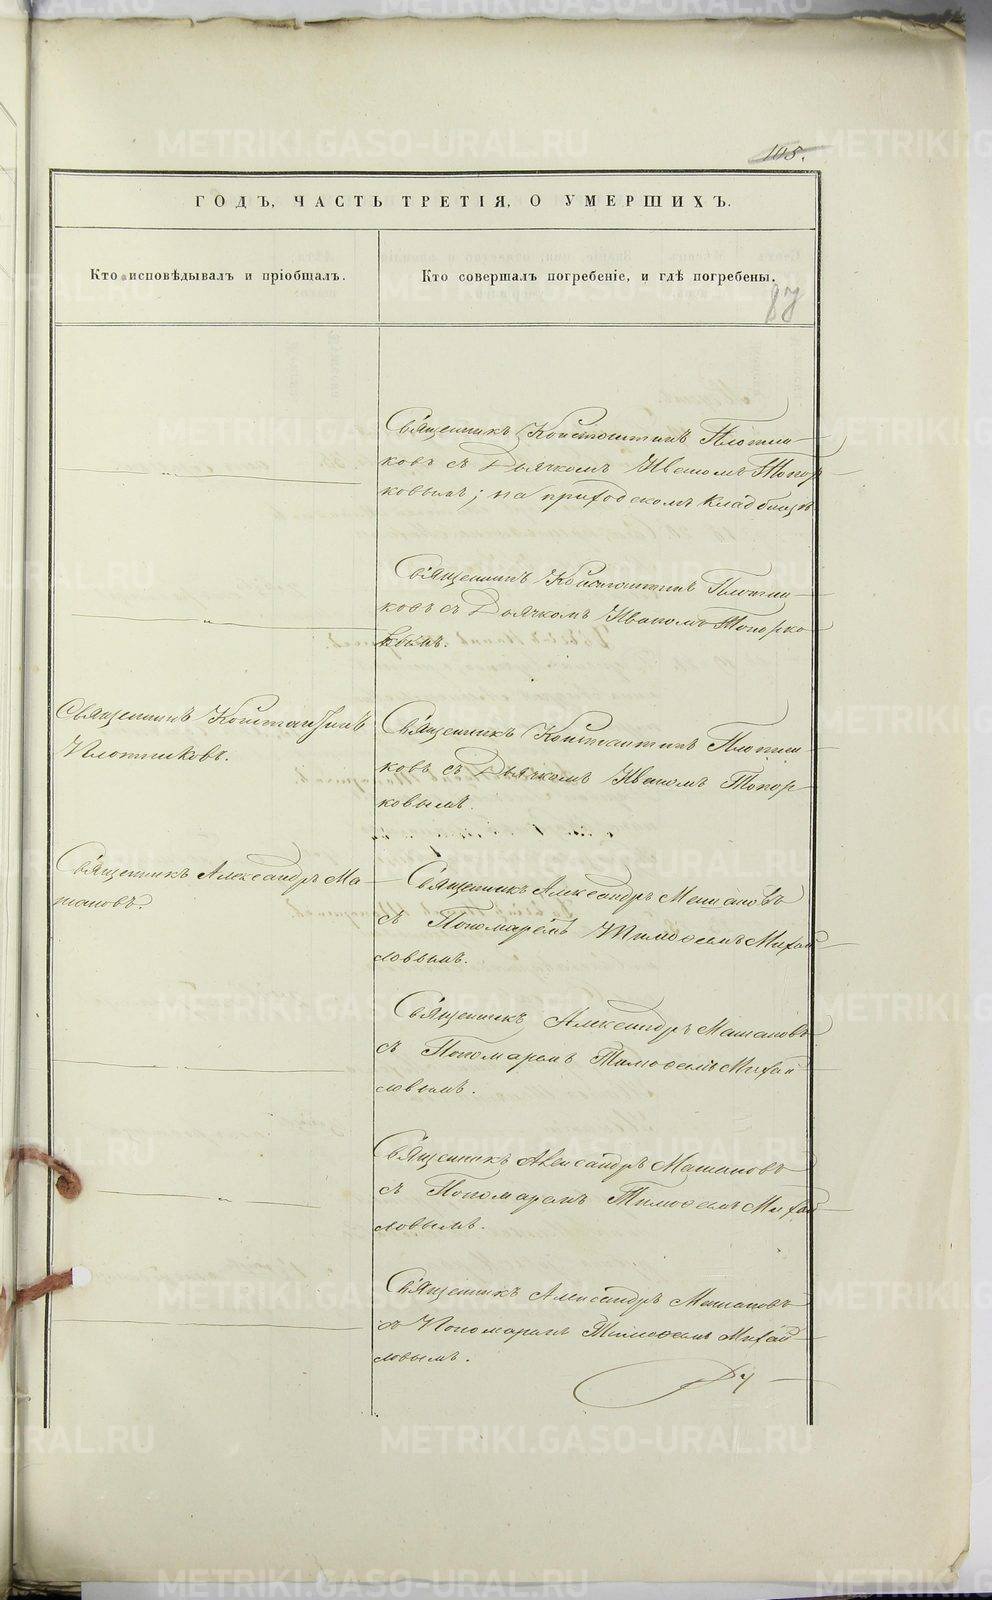 105.
ГОДЪ, ЧАСТЬ ТРЕТІЯ, О УМЕРШИХЪ.
Кто исповѣдывалъ и пріобщалъ.
Кто совершалъ погребеніе, и гдѣ погребены.
87
Священникъ Константинъ Плотни-
ковъ съ Дьячкомъ Иваномъ Топор-
ковымъ; на приходскомъ кладбищѣ
Священникъ Константинъ Плотни-
ковъ съ Дьячкомъ Иваномъ Топорко-
вымъ.
Священникъ Константинъ
Плотниковъ.
Священникъ Константинъ Плотни-
ковъ съ Дьячкомъ Иваномъ Топор-
ковымъ.
Священникъ Александръ Ма-
мановъ.
Священникъ Александръ
съ Пономаремъ Тимофеемъ Михай-
ловымъ.
Священникъ Александръ
съ Пономаремъ Тимофеемъ Михай-
ловымъ.
Священникъ Александръ
съ Пономаремъ Тимофеемъ Михай-
ловымъ.
Священникъ Александръ
съ Пономаремъ Тимофеемъ Михай-
ловымъ.
METRIKI.GASO-URAL.RU